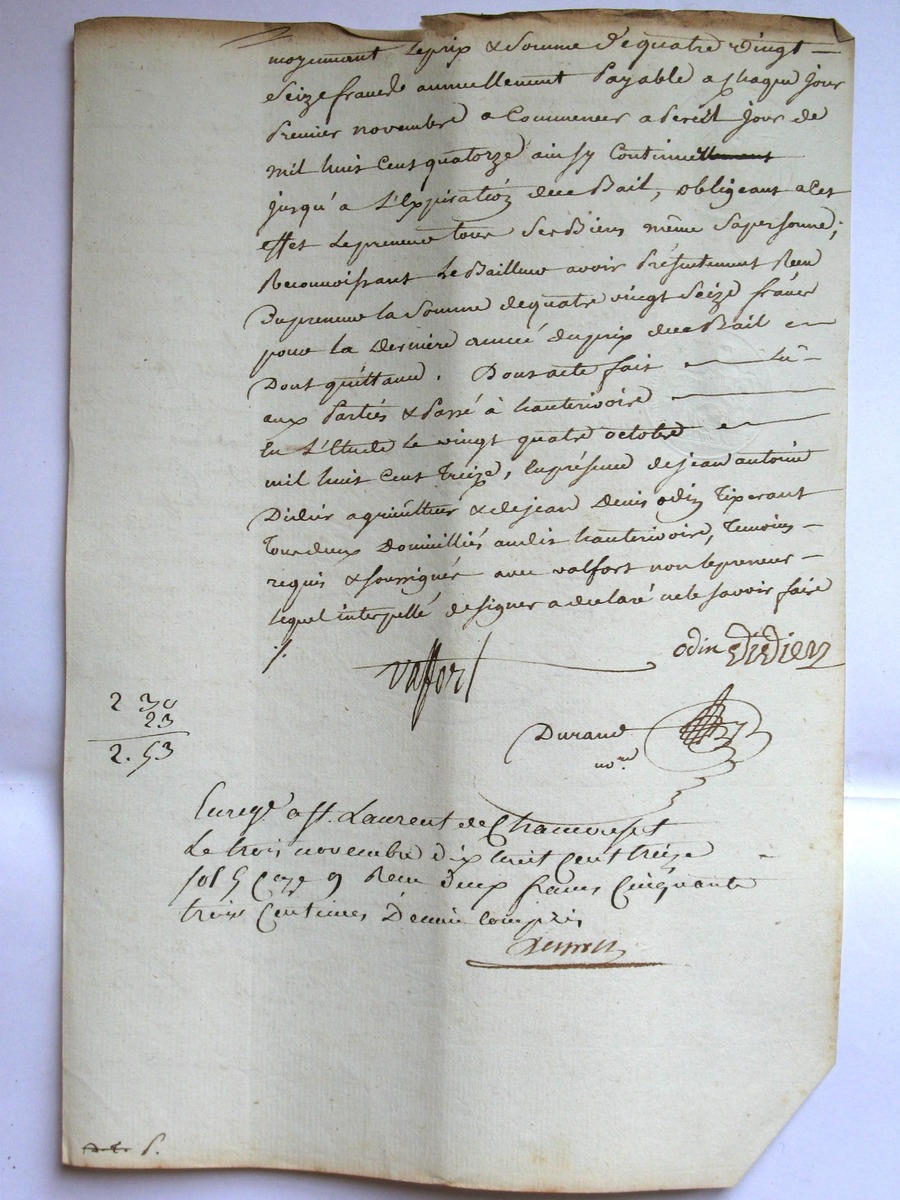 moyennant le prix & Somme de quatre vingt
Seize francs annuellement Payable a Chaque jour
Premier novembre a Commencer a Pareil jour de
mil huit Cent quatorze ainsy Continuellement
jusqu'a L'Expiration du Bail, obligeant a Cet
effet Le preneur tous Ses Biens même Sa personne;
Reconnoissant Le Bailleur avoir Présentement Reçu
Du preneur la Somme de quatre vingt Seize francs
pour la Derniere année du prix du Bail
Dont quittance. Dont acte fait Lû
aux Parties & Passé à hauterivoire
En L'Etude Le vingt quatre octobre
mil huit Cent Treize, En présence de jean antoine
Didier agriculteur & de jean Denis odin Tixerant
Tous deux Domiciliés audit hauterivoire, Temoins
requis & soussignés avec valfort non le preneur
lequel interpellé de signer a déclaré ne le savoir faire
./.
valfort odin Didier
2 30
23
2.53
Durand
no.re
Enreg.é a St. Laurent de Chamousset
Le trois novembre dix huit Cent treize
fol 5 Case 9 Reçu deux francs Cinquante
trois Centimes Decime Compris